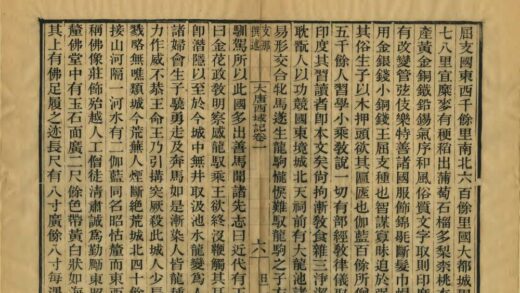 屈支國東西千餘里南北六百餘里國大都城
七八里宜穈麥有稉稻出蒲萄石榴多梨柰桃
產黃金銅鐵鉛錫氣序和風俗質文字取則印度
有改變管弦伎樂特善諸國服飾錦毼斷髮巾帽
用金銀錢小銅錢王屈支種也智謀寡昧迫於
其俗生子以木押頭欲其匾㔸也伽藍百餘所
五千餘人習學小乘教說一切有部經教律儀
印度其習讀者即本文矣尚拘漸教食雜三淨潔
耽翫人以功競國東境城北天祠前有大龍池
易形交合牝馬遂生龍駒𢤱悷難馭龍駒之子方
支那撰述
大唐西域記卷一
六
馴駕所以此國多出善馬聞諸先志曰近代有王
曰金花政教明察感龍馭乘王欲終沒鞭觸其
即潛隱以至於今城中無井取汲池水龍變為
諸婦會生子驍勇走及奔馬如是漸染人皆龍種
力作威不恭王命王乃引搆突厥殺此城人少長
戮略無噍類城今荒蕪人煙斷絕荒城北四十餘
接山阿隔一河水有二伽藍同名昭怙釐而東西
稱佛像莊飾殆越人工僧徒清肅誠為勤勵東昭
釐佛堂中有玉石面廣二尺餘色帶黃白狀如海
其上有佛足履之迹長尺有八寸廣餘八寸